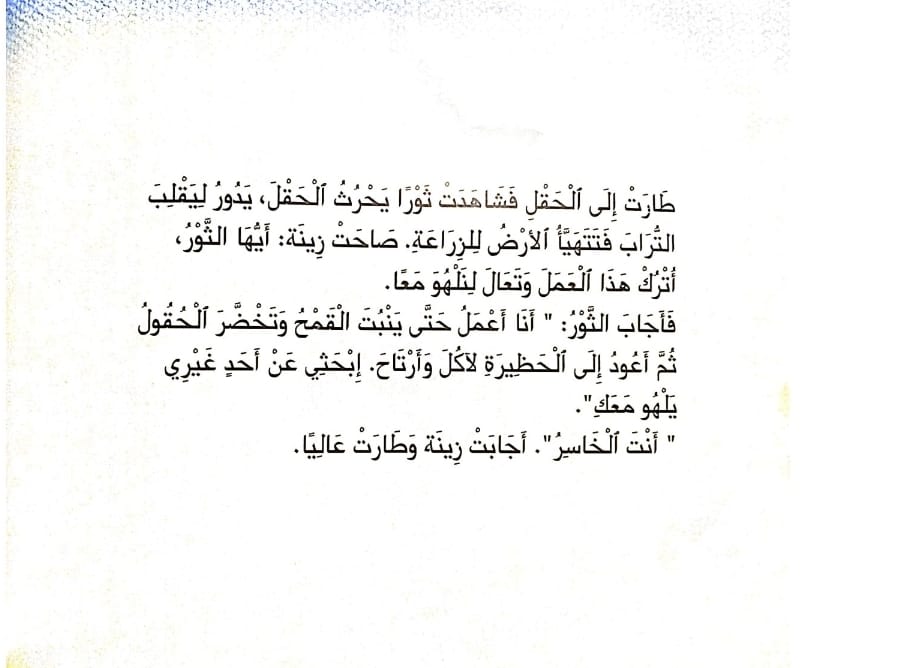 طَارَتْ إِلَى ٱلْحَقْلِ فَشَاهَدَتْ ثَوْرًا يَحْرُثُ ٱلْحَقْلَ، يَدُورُ لِيَقْلِبَ
التُّرَابَ فَتَتَهَيَّأُ ٱلأرْضُ لِلزِرَاعَةِ. صَاحَتْ زِينَة: أَيُّهَا الثَّوْرُ،
أُتْرُكْ هَذَا ٱلْعَمَلَ وَتَعَالَ لِنَلْهُوَ مَعًا.
فَأَجَابَ الثَّوْرُ: " أَنَا أَعْمَلُ حَتَّى يَنْبُتَ الْقَمْحُ وَتَخْضَّرَ ٱلْحُقُولُ
ثُمَّ أَعُودُ إِلَى ٱلْحَظِيرَةِ لآكُلَ وَأَرْتَاحَ. إِبْحَثِي عَنْ أَحَدٍ غَيْرِي
يَلْهُو مَعَكِ".
" أَنْتَ ٱلْخَاسِرُ". أَجَابَتْ زِينَة وَطَارَتْ عَالِيًا.